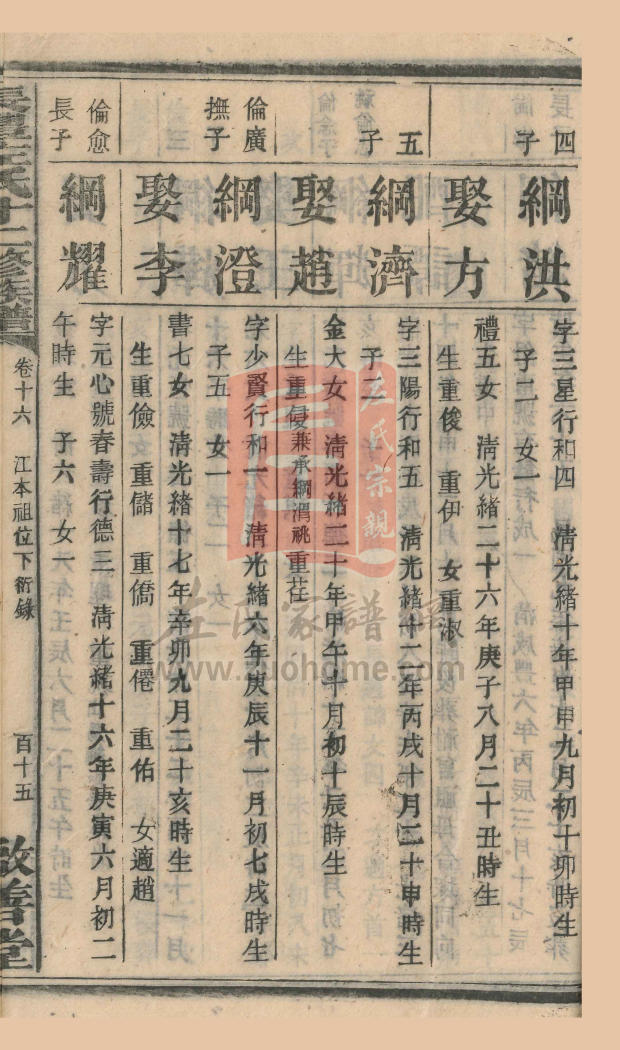 四子
綱洪
字三星行和四 清光緒十年甲申九月初十卯時生
子二女一
娶方
禮五女 清光緒二十六年庚子八月二十丑時生
生重俊 重伊 女重淑
五子
綱濟
字三陽行和五 清光緒十二年丙戌十月二十申時生
子二
娶趙
金大女 清光緒二十年甲午十月初十辰時生
生重侵兼承綱渭祧 重荏
倫廣撫子
綱澄
字少賢行和一 清光緒六年庚辰十一月初七戌時生
子五 女一
娶李
書七女 清光緒十七年辛卯九月二十亥時生
生重儉 重儲 重僑 重僊 重佑 女適趙
倫愈長子
綱耀
字元心號春壽行德三 清光緒十六年庚寅六月初二
午時生 子六 女一
左氏十二修族譜
卷十六 江本祖位下衍錄
百十五
敬善堂
左氏宗親
左氏家譜
www.zuohome.com